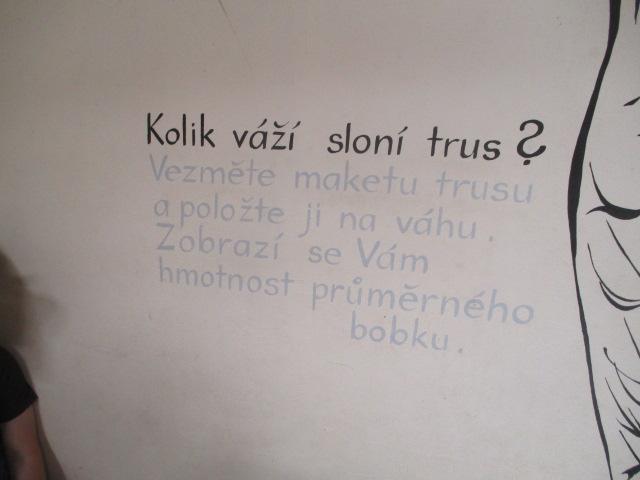 Kolik váží sloní trus?
Vezměte maketu trusu
a položte ji na váhu.
Zobrazí se Vám
hmotnost průměrného
bobku.